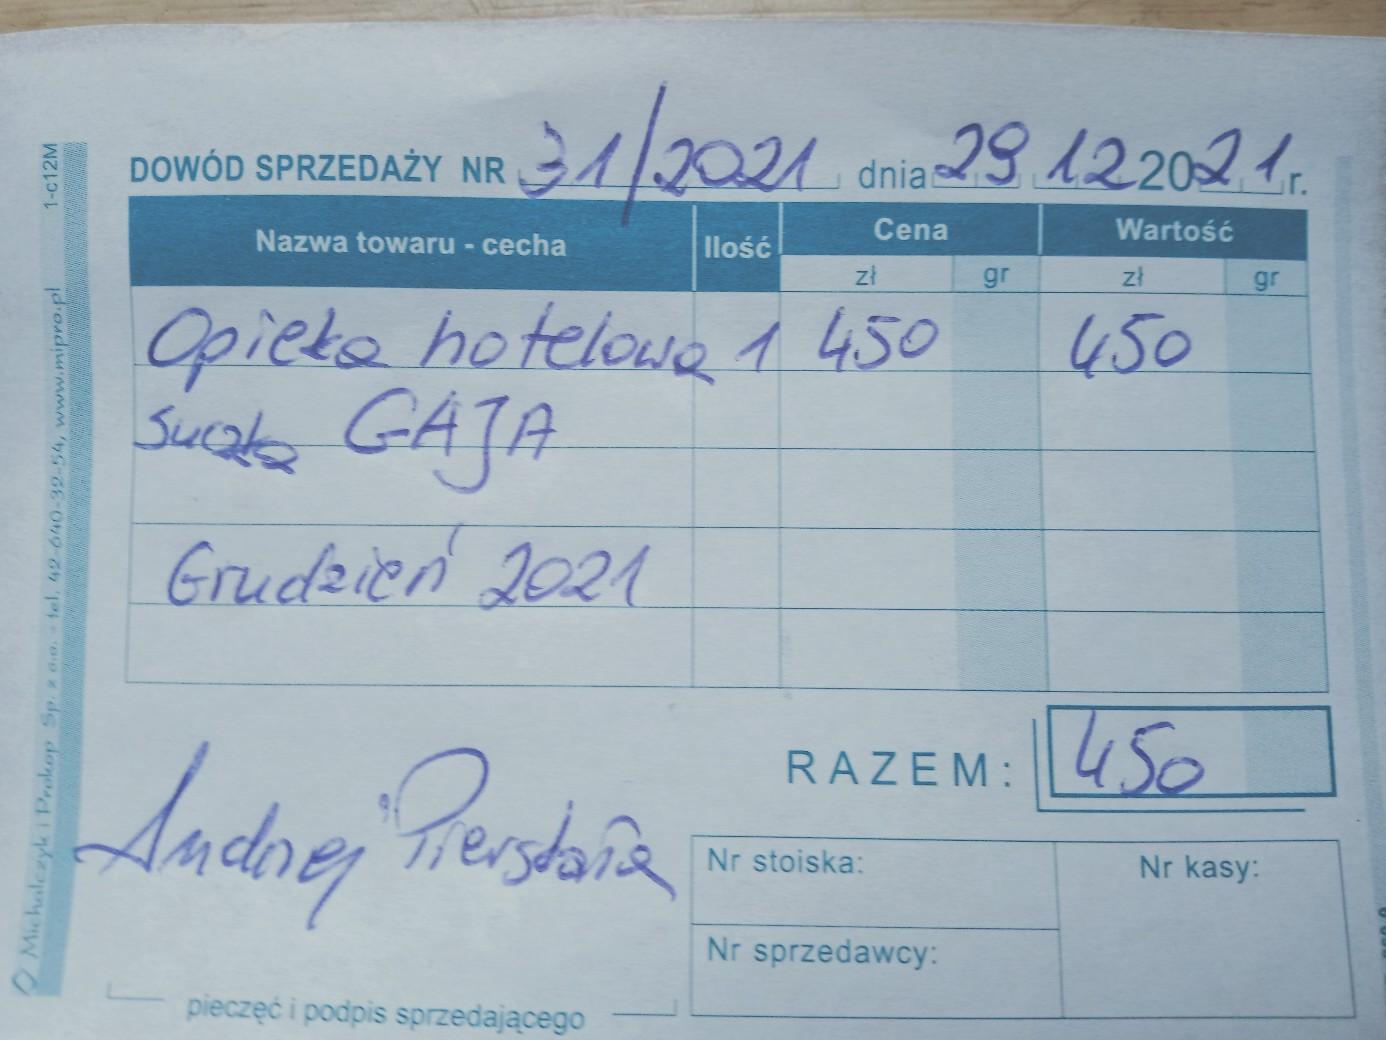 DOWÓD SPRZEDAŻY NR 31/2021 dnia 29 12 2021 r.
Nazwa towaru - cecha Ilość Cena Wartość
zł gr zł gr
Opieka hotelowa 1 450 450
suczka GAJA
Grudzień 2021
RAZEM: 450
Andrzej
Nr stoiska: Nr kasy:
Nr sprzedawcy:
pieczęć i podpis sprzedającego
Michalczyk i Prokop Sp. z o.o. - tel. 42-640-32-54, www.mipro.pl 1-c12M